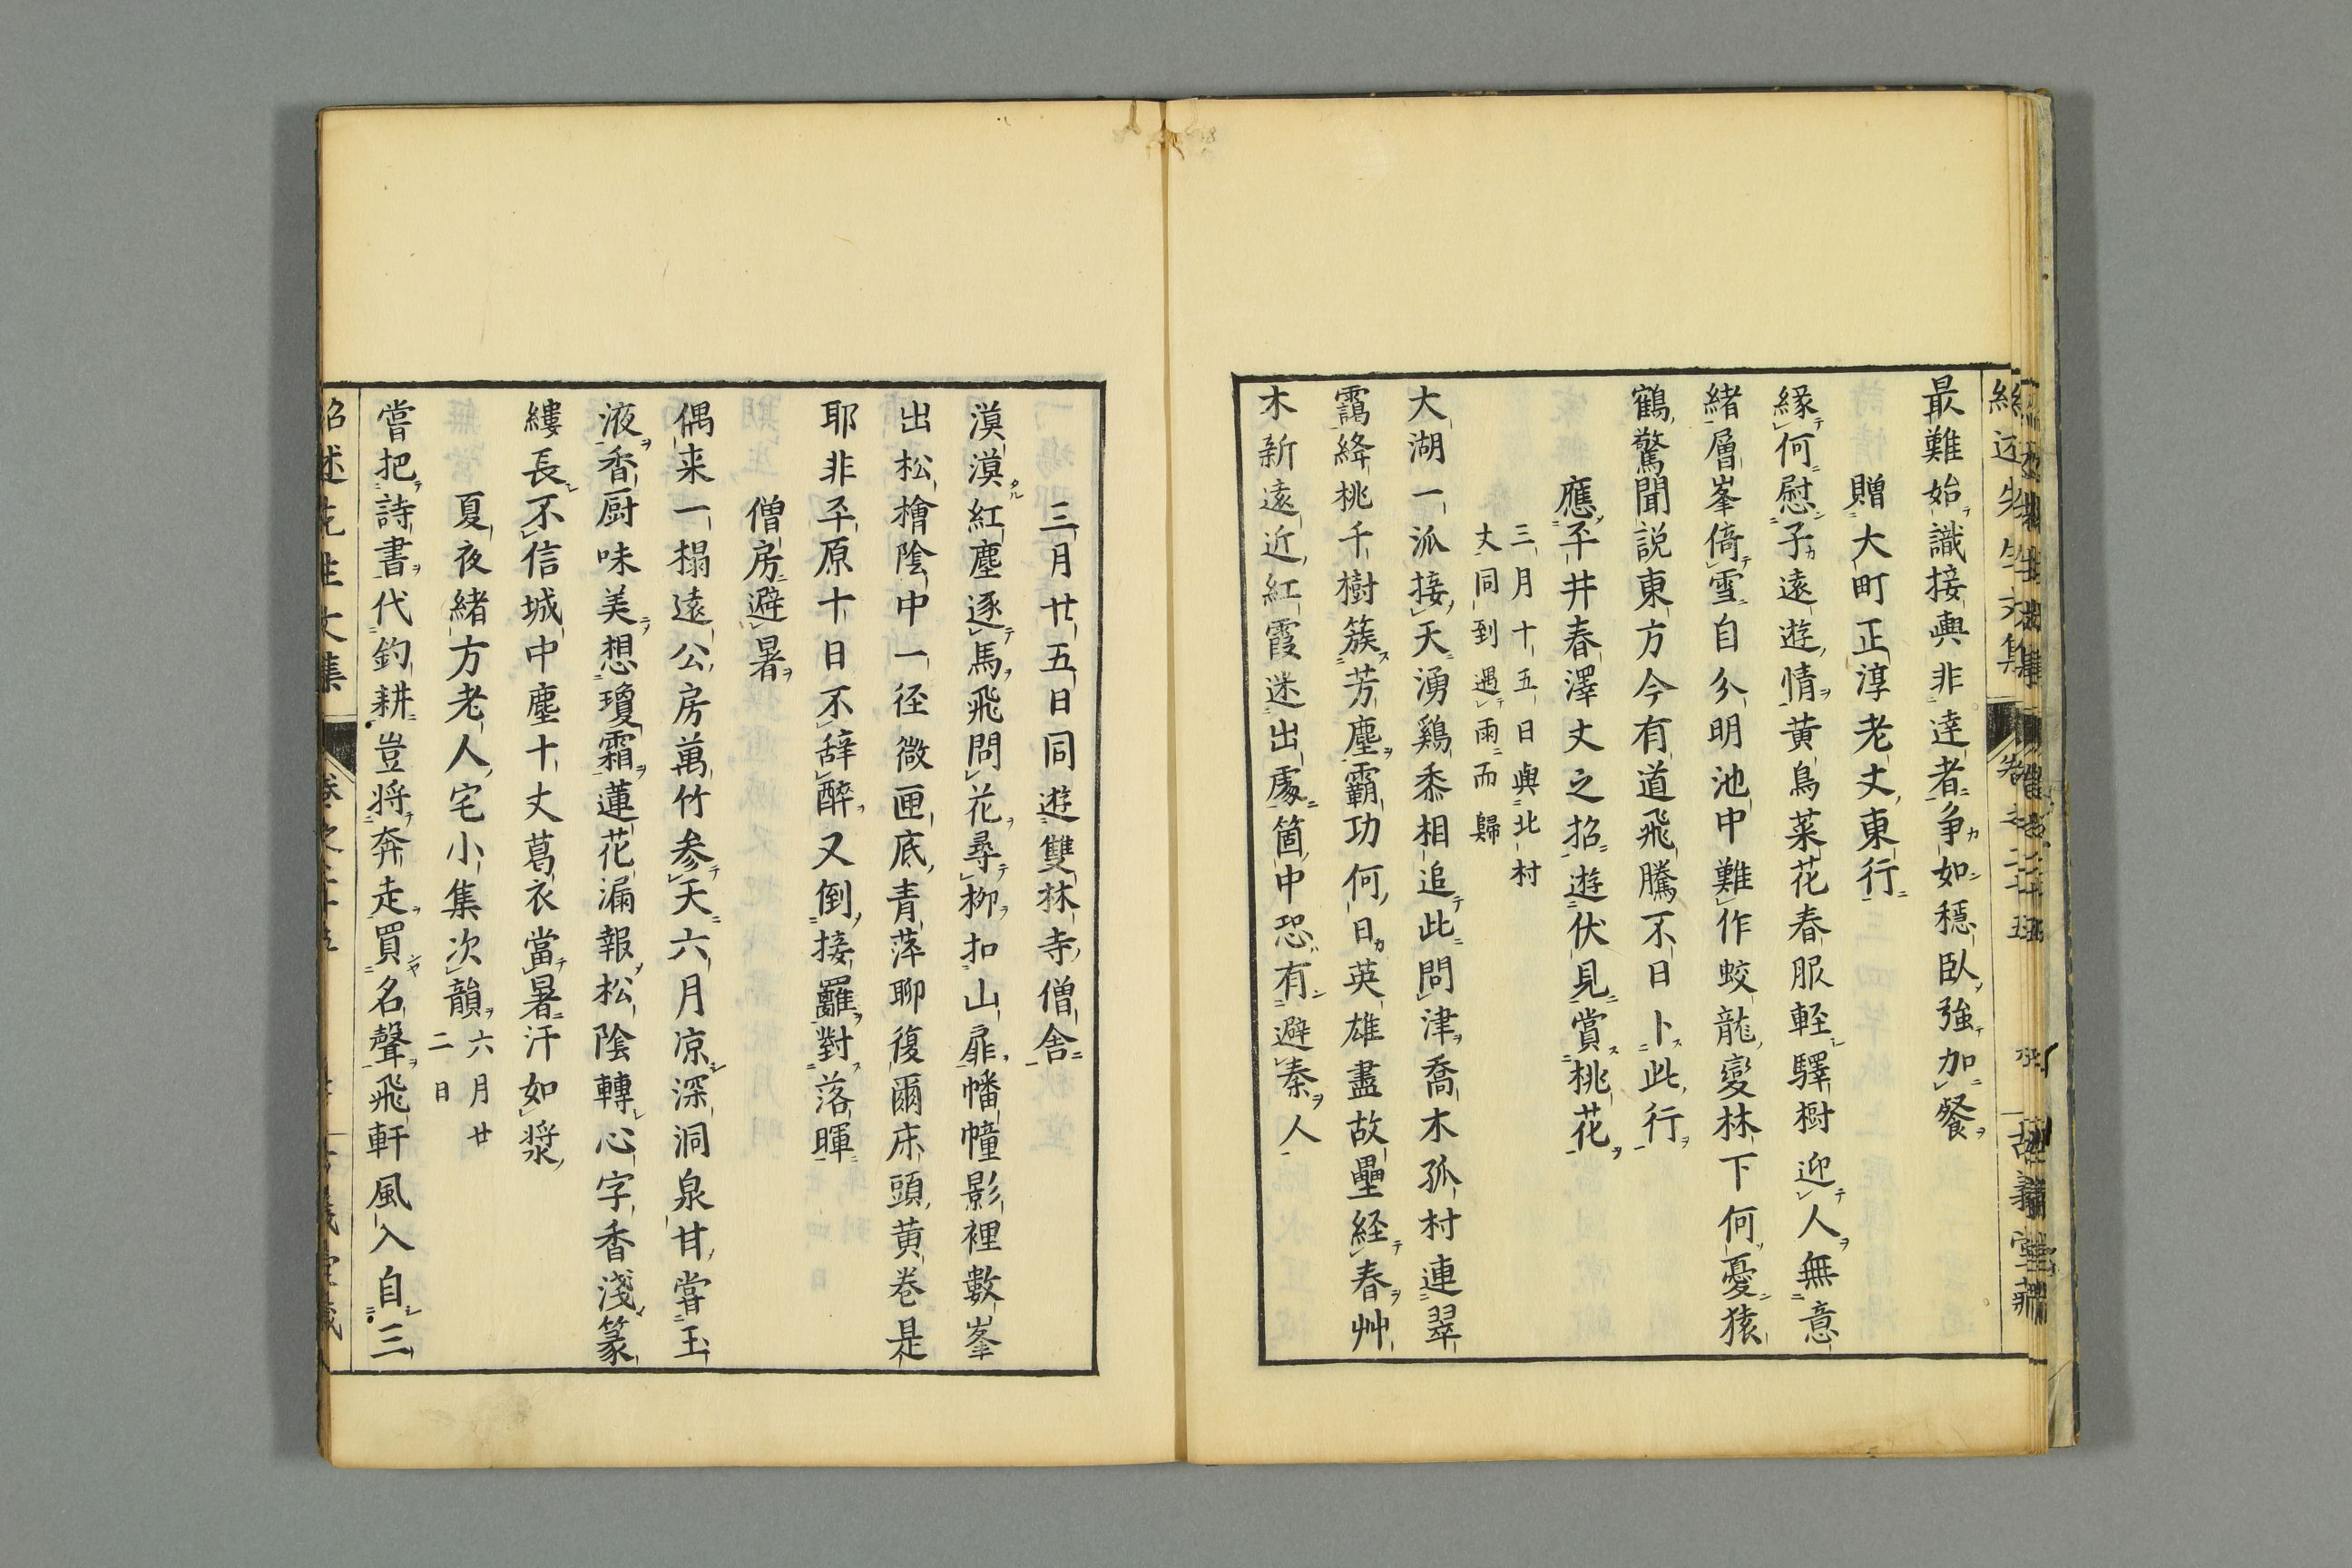 最難始識接輿非達者争如穏臥強加餐
贈大町正淳老丈東行
縁何慰子遠遊情黄鳥菜花春服軽驛樹迎人無意
緒層峯倚雪自分明池中難作蛟龍變林下何憂猿
鶴驚聞説東方今有道飛騰不日卜此行
應平井春澤丈之招遊伏見賞桃花
三月十五日與北村
丈同到遇雨而歸
大湖一派接天湧鶏黍相追此問津喬木孤村連翠
靄絳桃千樹簇芳塵霸功何日英雄盡故壘経春艸
木新遠近紅霞迷出處箇中恐有避秦人
三月廿五日同遊雙林寺僧舎
漠漠紅塵逐馬飛問花尋柳扣山扉幡幢影裡數峯
出松檜陰中一径微匣底青萍聊復爾床頭黄巻是
耶非平原十日不辞醉又倒接䍦對落暉
僧房避暑
偶来一榻遠公房萬竹参天六月凉深洞泉甘嘗玉
液香厨味美想瓊霜蓮花漏報松陰轉心字香淺篆
縷長不信城中塵十丈葛衣當暑汗如漿
夏夜緒方老人宅小集次韻
六月廿
二日
嘗把詩書代釣耕豈将奔走買名聲飛軒風入自三
紹述先生文集 卷之二十五 古義堂藏